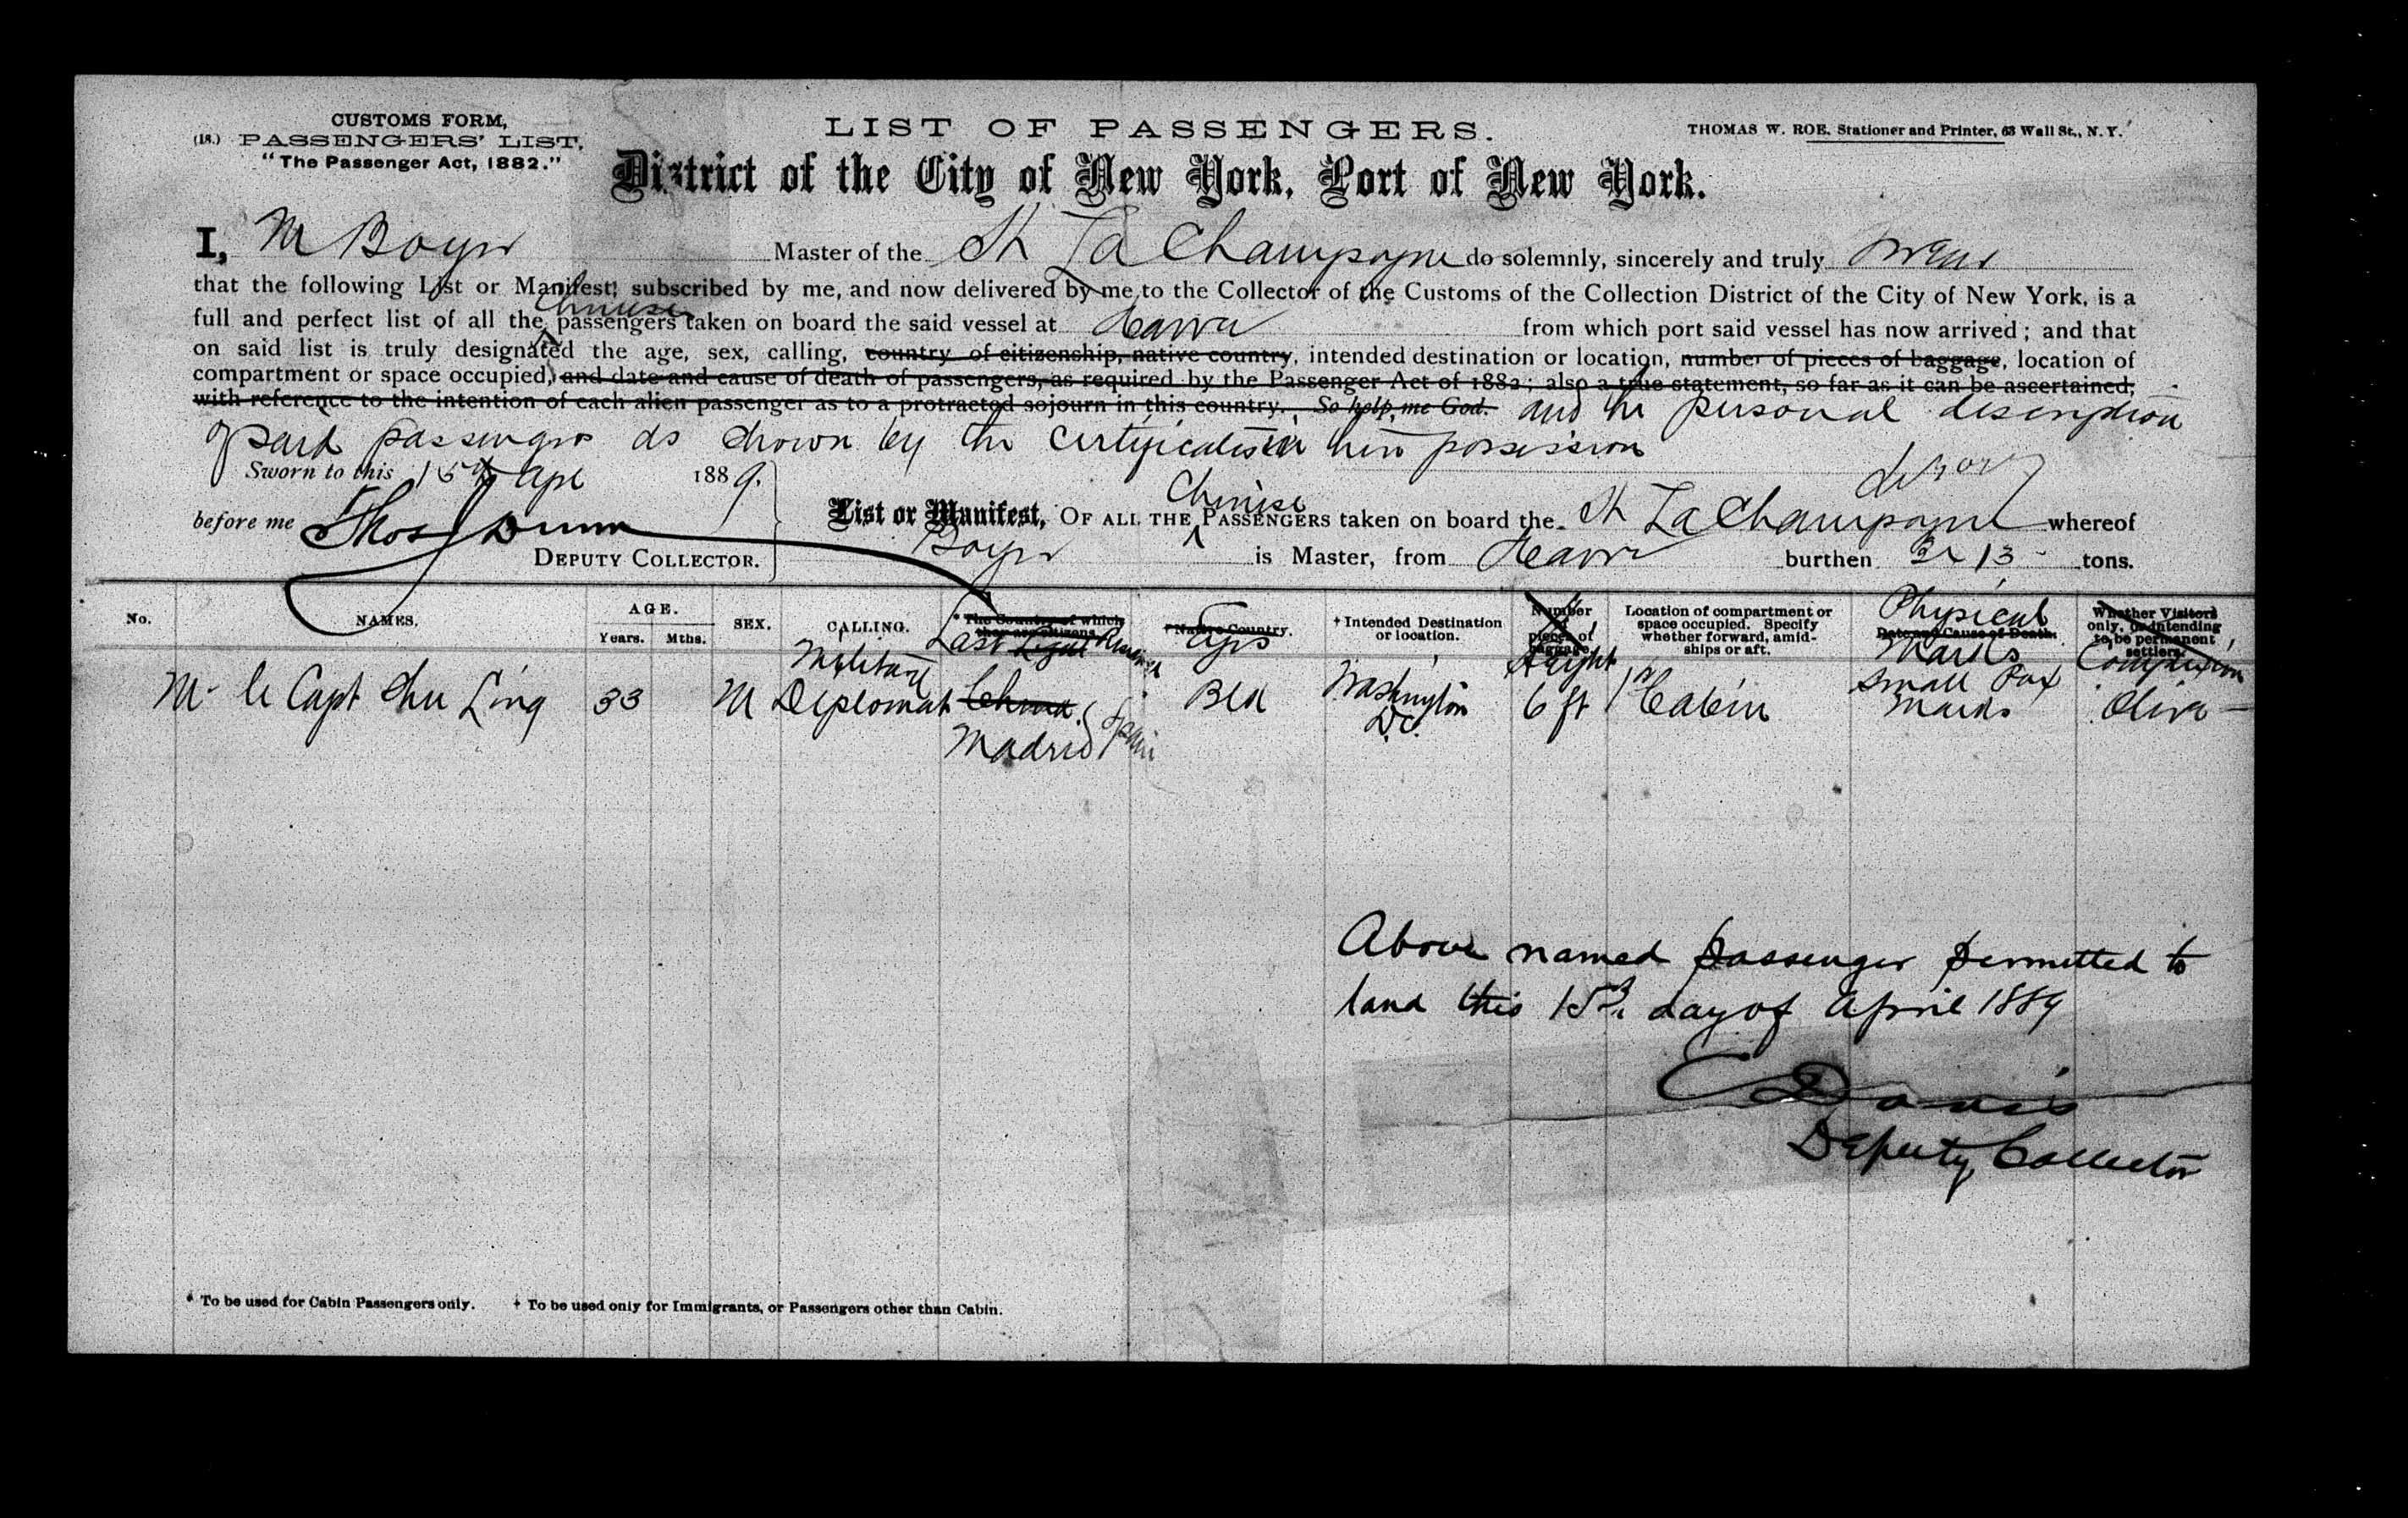 CUSTOMS FORM,
(18.) PASSENGERS' LIST,
"The Passenger Act, 1882."
LIST OF PASSENGERS.
THOMAS W. ROE, Stationer and Printer, 63 Wall St., N. Y.
District of the City of New York, Port of New York.
I, M Boyer Master of the St La Champagne do solemnly, sincerely and truly swear
that the following List or Manifest, subscribed by me, and now delivered by me to the Collector of the Customs of the Collection District of the City of New York, is a
full and perfect list of all the Chinese passengers taken on board the said vessel at Havre from which port said vessel has now arrived; and that
on said list is truly designated the age, sex, calling, country of citizenship, native country, intended destination or location, number of pieces of baggage, location of
compartment or space occupied, and date and cause of death of passengers, as required by the Passenger Act of 1882; also a true statement, so far as it can be ascertained,
with reference to the intention of each alien passenger as to a protracted sojourn in this country. So help me God. and the personal description
of said passengers as shown by the certificates in their possession
Sworn to this 15th Apl 1889.
before me Thos Dunn
DEPUTY COLLECTOR.
List or Manifest, OF ALL THE Chinese PASSENGERS taken on board the St La Champagne whereof
Boyer is Master, from Havre burthen tons.
No.
NAMES.
AGE.
Years. Mths.
SEX.
CALLING.
* The Country of which they are citizens.
Last Legal Residence
† Native Country.
Eyes
† Intended Destination or location.
Number of pieces of baggage.
Height
Location of compartment or space occupied. Specify whether forward, amidships or aft.
Date and Cause of Death.
Physical Marks
Whether Visitors only, or intending to be permanent settlers.
Complexion
Mr le Capt Chu Ling 33 M Military Diplomat China Madrid Spain Blk Washington D.C. 6 ft 1st Cabin Small Pox Marks Olive
Above named passenger permitted to
land this 15th day of April 1889
C Davis
Deputy Collector
* To be used for Cabin Passengers only. † To be used only for Immigrants, or Passengers other than Cabin.